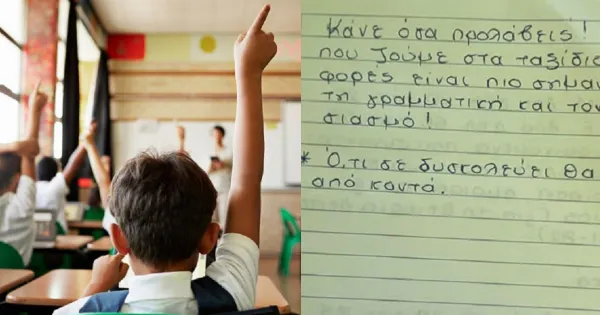 Κάνε όσα προλάβεις!
που ζούμε στα ταξίδια
φορες είναι πιο σημαν
τη γραμματική και τον
σιασμό!
* Ό,τι σε δυσκολεύει θα
από κοντά.